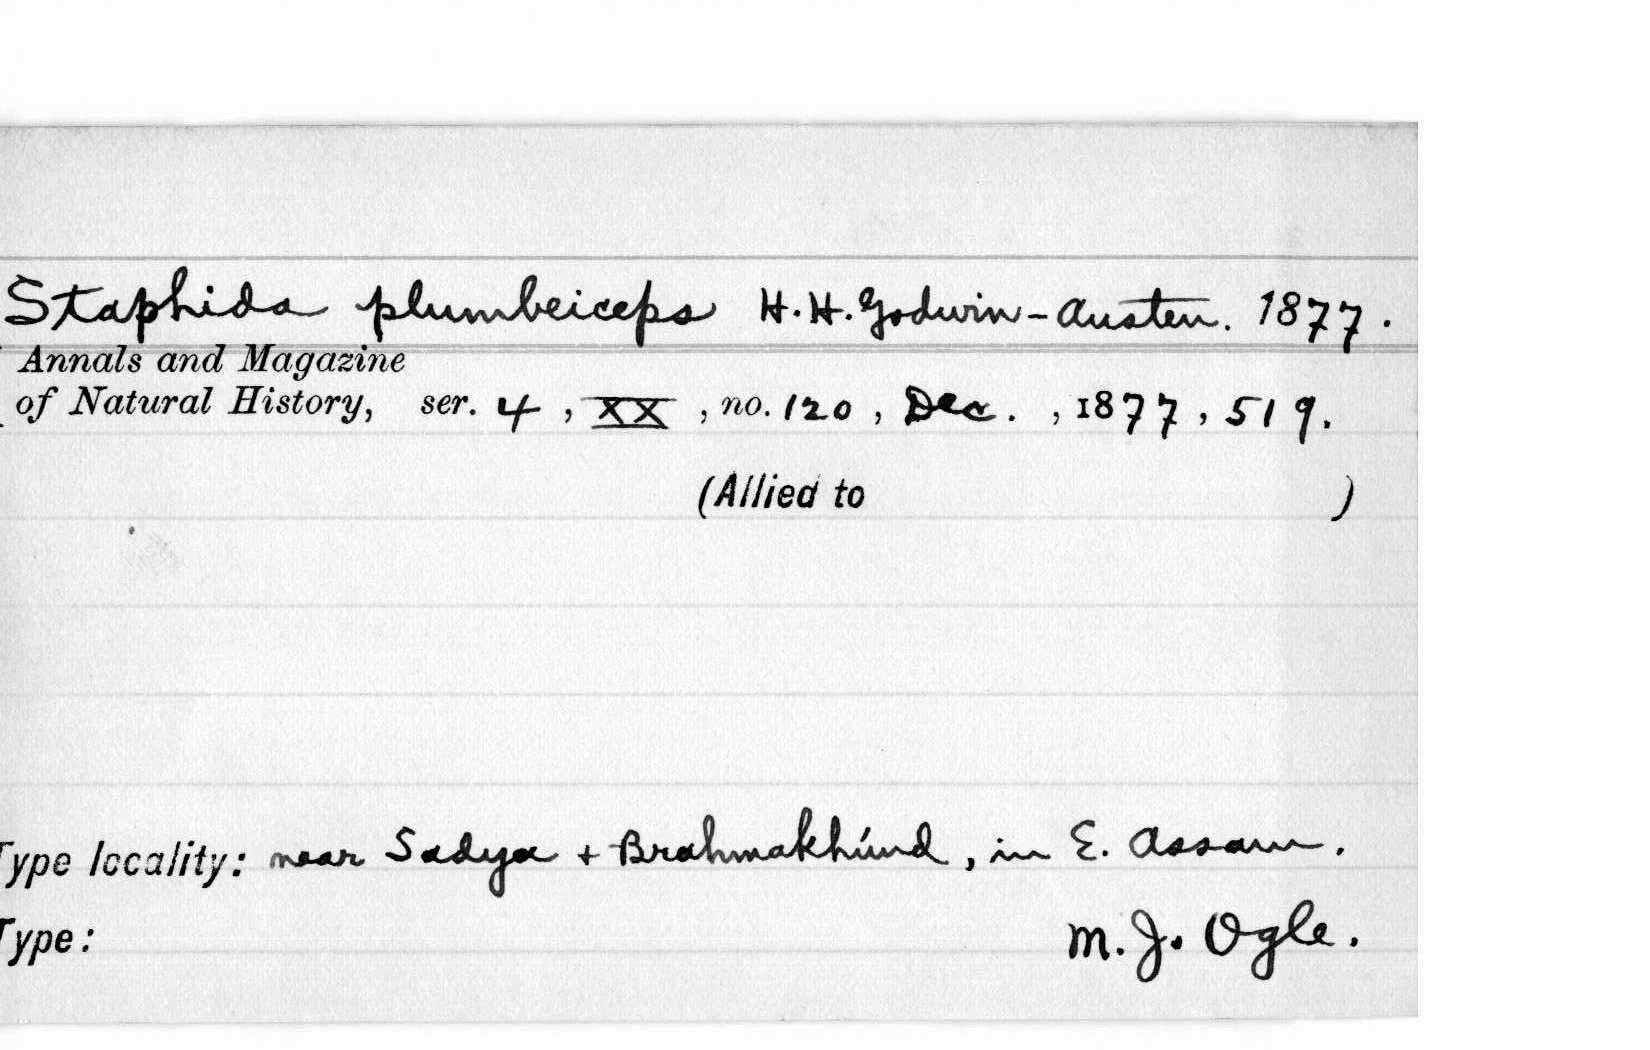 Staphida plumbeiceps H.H. Godwin-Austen. 1877.
Annals and Magazine
of Natural History, ser. 4, XX, no. 120, Dec. , 1877, 519.
(Allied to )
Type locality: near Sadya + Brahmakhúnd, in E. Assam.
Type: M.J. Ogle.